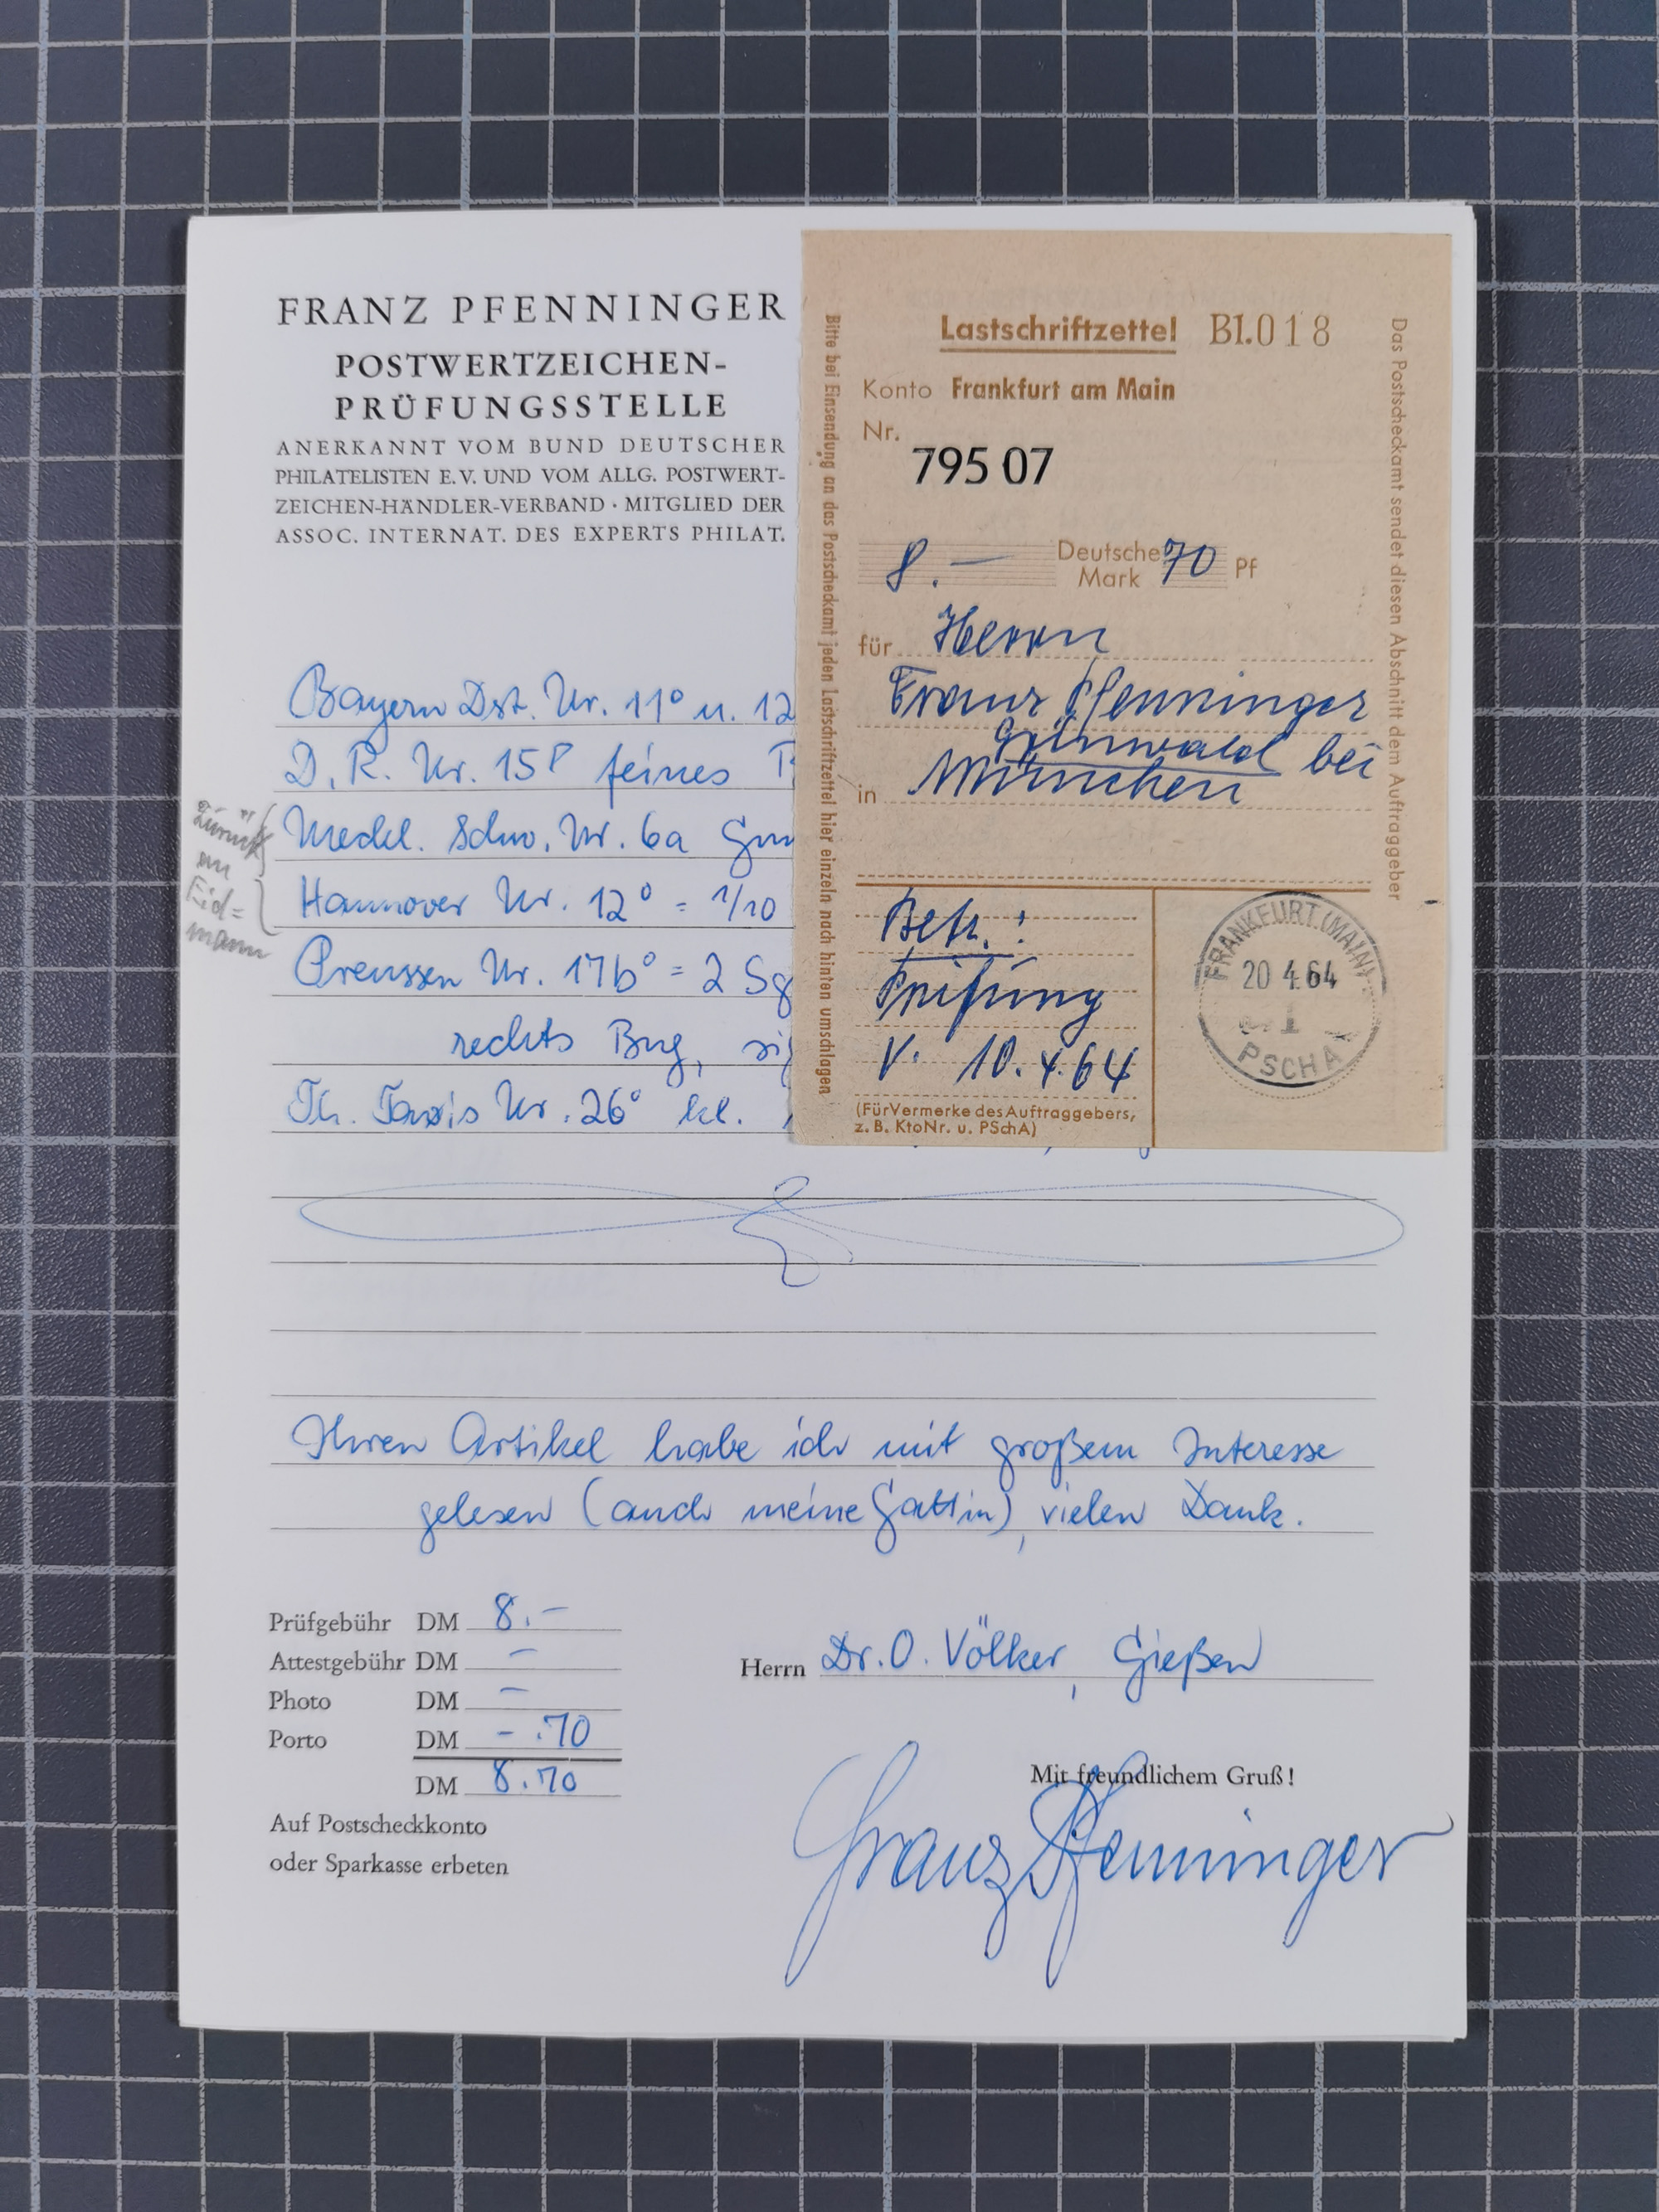 FRANZ PFENNINGER
POSTWERTZEICHEN-
PRÜFUNGSSTELLE
ANERKANNT VOM BUND DEUTSCHER
PHILATELISTEN E.V. UND VOM ALLG. POSTWERT-
ZEICHEN-HÄNDLER-VERBAND · MITGLIED DER
ASSOC. INTERNAT. DES EXPERTS PHILAT.
Bayern Dst. Nr. 11° u. 12
D. R. Nr. 15P feines
Meckl. Schw. Nr. 6a
Hannover Nr. 12° = 1/10
Preussen Nr. 17b° = 2 Sg
rechts Bug,
Th. Taxis Nr. 26° kl.
Zurück
an
Eid=
mann
Ihren Artikel habe ich mit großem Interesse
gelesen (auch meine Gattin), vielen Dank.
Prüfgebühr DM 8.-
Attestgebühr DM -
Photo DM -
Porto DM -.70
DM 8.70
Auf Postscheckkonto
oder Sparkasse erbeten
Herrn Dr. O. Völker, Gießen
Mit freundlichem Gruß!
Franz Pfenninger
Bitte bei Einsendung an das Postscheckamt jeden Lastschriftzettel hier einzeln nach hinten umschlagen
Lastschriftzettel Bl.018
Konto Frankfurt am Main
Nr.
795 07
8.— Deutsche Mark 70 Pf
für Herrn
Franz Pfenninger
Grünwald bei
in München
Betr.:
Prüfung
v. 10.4.64
(Für Vermerke des Auftraggebers,
z. B. KtoNr. u. PSchA)
FRANKFURT (MAIN)
20 4.64
PSCHA
Das Postscheckamt sendet diesen Abschnitt dem Auftraggeber